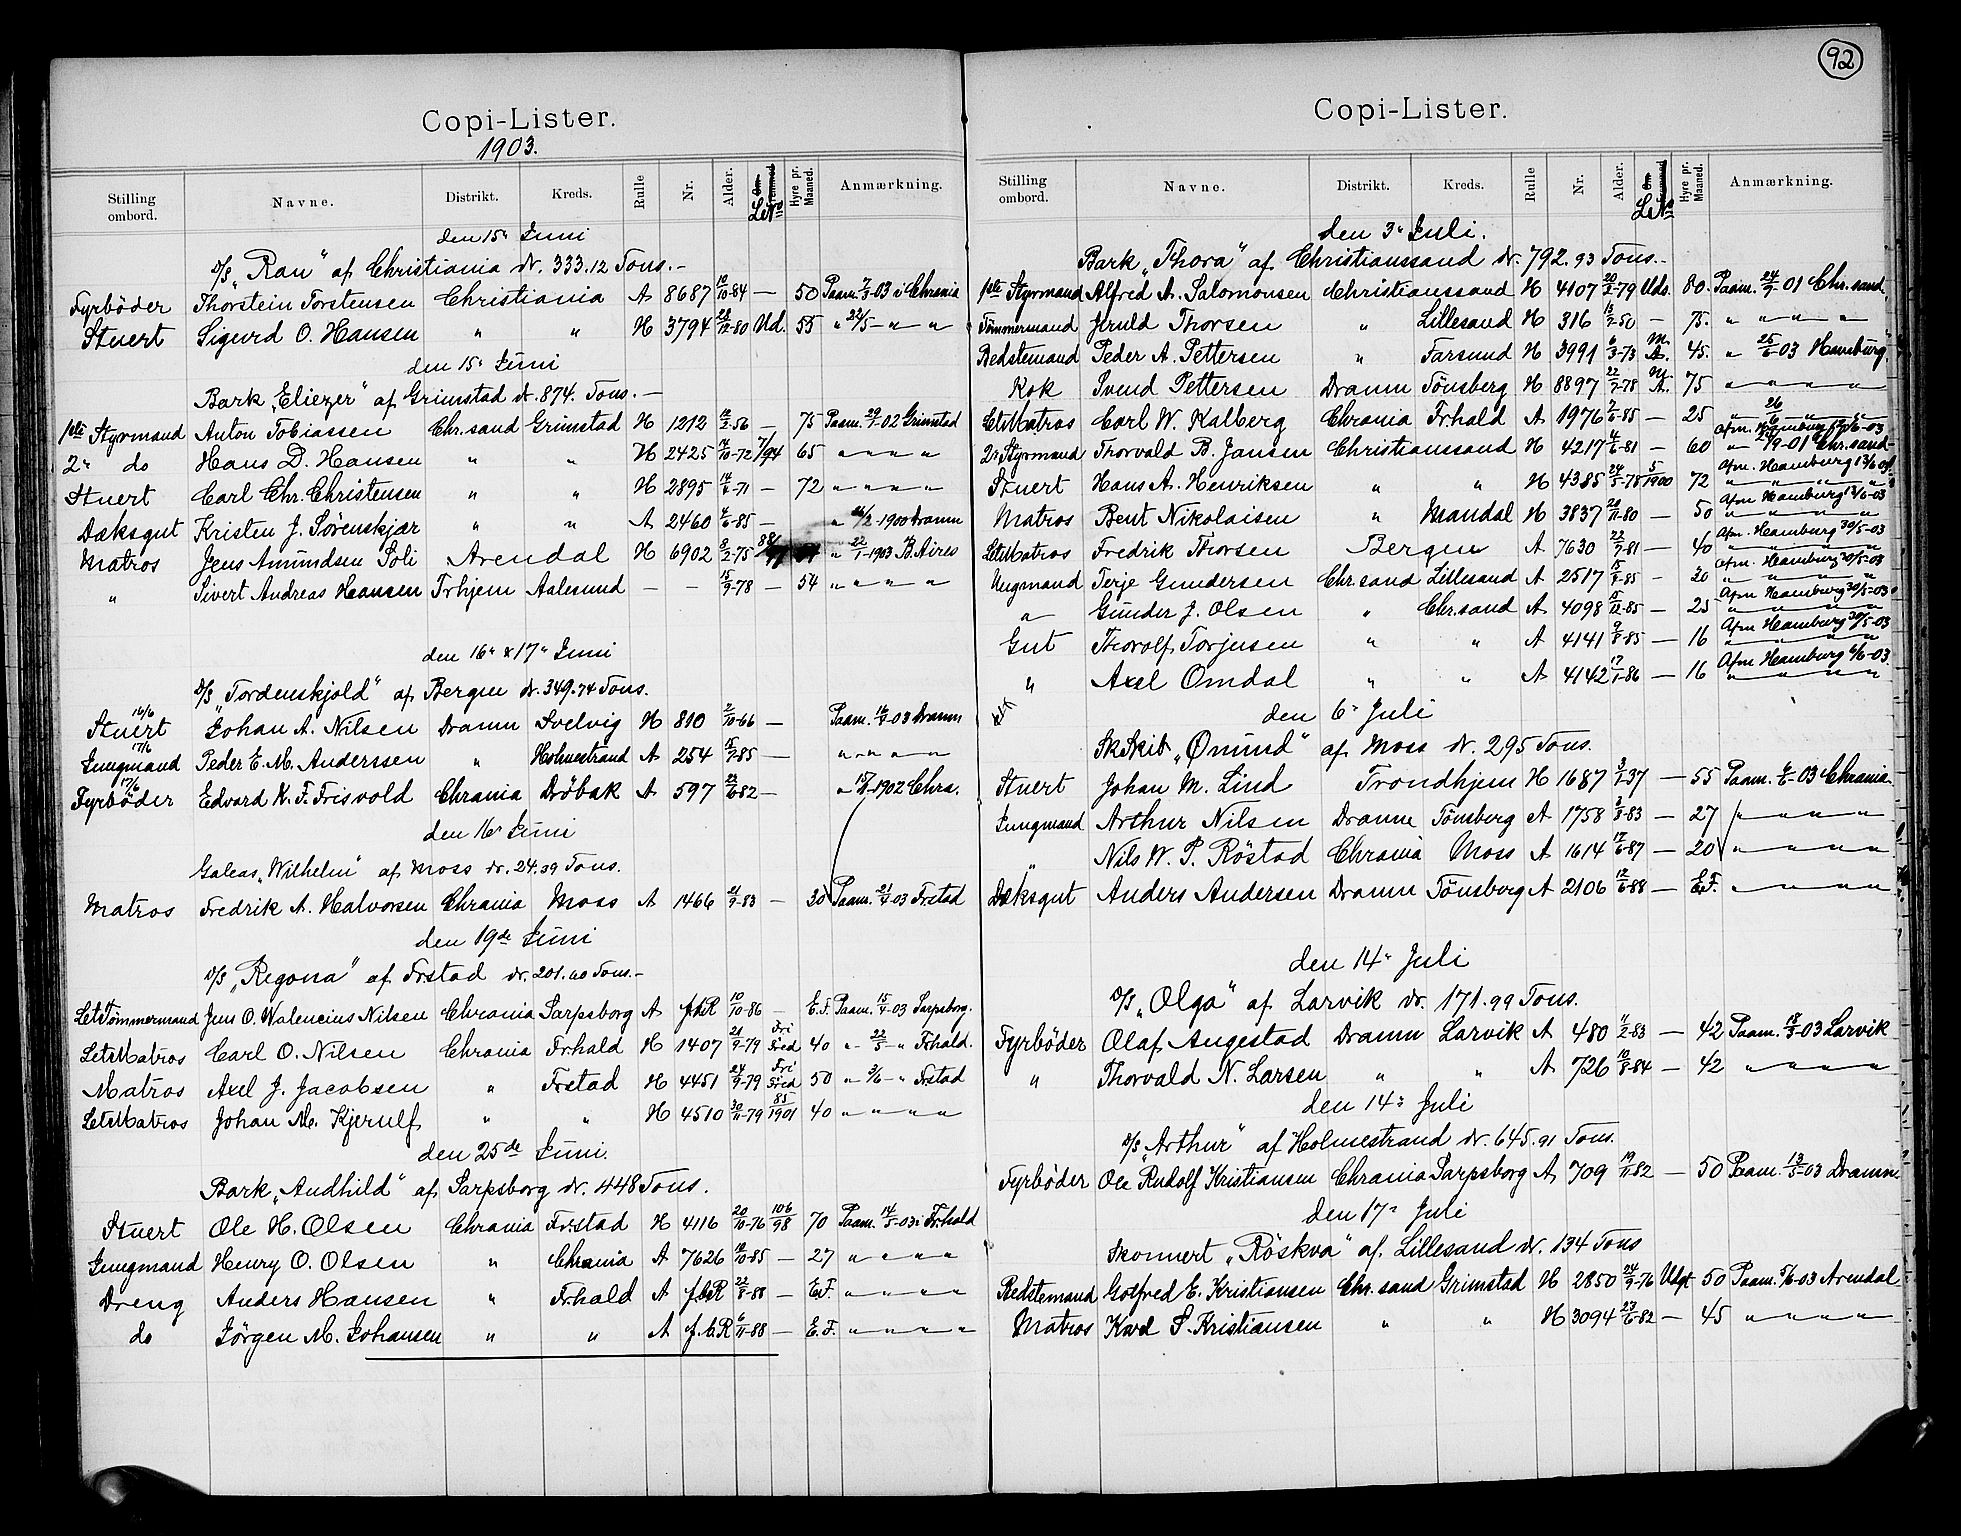 92
Copi-Lister.
1903.
Stilling ombord. Navne. Distrikt. Kreds. Rulle Nr. Alder. Hyre pr. Maaned. Anmærkning.
den 15' Juni
D/S „Ran" af Christiania dr. 333.12 Tons.-
Fyrbøder Thorstein Torstensen Christiania A 8687 10/10-84 — 50 Paam. 7/3-03 i Chrania
Stuert Sigurd O. Hansen " " H 3794 28/12-80 Ud. 55 " 22/5 - " - "
den 15' Juni
Bark „Eliezer" af Grimstad dr. 874. Tons. —
1ste Styrmand Anton Tobiassen Chr.sand Grimstad H 1212 -56 — 75 Paam. 29/-02 Grimstad
2' do Hans D. Hansen " " H 2425 /10-72 7/94 65 " " " "
Stuert Carl Chr. Christensen " " H 2895 14/6-71 — 72 " " " "
Dæksgut Kristen J. Sørenskjær " " A 2460 4/6-85 — " /2-1900 Dramn
Matros Jens Amundsen Soli Arendal H 6902 8/2-75 " 22/1-1903 B. Aires
" Sivert Andreas Hansen Trhjem Aalesund — — 15/9-78 — 54 " " " "
den 16' & 17' Juni
D/S „Tordenskjold" af Bergen dr. 349.74 Tons.
16/6
Stuert Johan A. Nilsen Dramn Svelvig H 810 2/10-66 — Paam. -03 Dramn
17/6
Jungmand Peder E. M. Anderssen " Holmestrand A 254 15/-85 — " " " "
17/6
Fyrbøder Edvard K. F. Frisvold Chrania Drøbak A 597 22/6-82 — " -1902 Chra.
den 16' Juni
Galeas „Wilhelm" af Moss dr. 24.39 Tons.
Matros Fredrik A. Halvorsen Chrania Moss A 1466 21/9-83 — 30 Paam. 21/4-03 Frstad
den 19de Juni
D/S „Regona" af Frstad dr. 201.40 Tons.-
LetTømmermand Jens O. Walencius Nilsen Chrania Sarpsborg A f.b.R 10/10-86 — E.F. Paam. 15/4-03 Sarpsborg.
LetMatros Carl O. Nilsen Chrania Frhald H 1407 21/9-79 Fri 40 " 22/5 - " Frhald.
Matros Axel J. Jacobsen " Frstad H 4451 24/9-79 Fri 50 " 3/6 - " Frstad
LetMatros Johan M. Kjerulf " " H 4510 30/11-79 85/1901 40 " " " "
den 25de Juni.
Bark „Audhild" af Sarpsborg dr. 448 Tons.
Stuert Ole H. Olsen Chrania Fr.stad H 4116 20/10-76 106/98 70 Paam. 14/5-03 i Frhald
Jungmand Henry O. Olsen " Chrania A 7626 12/10-85 — 27 " " " "
Dreng Anders Hansen " Frhald A f.b.R 22/8-88 — E.F. " " " "
do Jörgen M. Johansen " " A f.b.R 6/11-88 — E.F. " " " "
Copi-Lister.
Stilling ombord. Navne. Distrikt. Kreds. Rulle Nr. Alder. Hyre pr. Maaned. Anmærkning.
den 3' Juli.
Bark „Thora" af Christianssand dr. 792.93 Tons.-
1ste Styrmand Alfred A. Salomonsen Christianssand H 4107 20/2-79 Uds. 80. Paam. 24/9-01 Chr.sand.
Tømmermand Jeruld Thorsen " Lillesand H 316 -50 — 75. " " " "
Bedstemand Peder A. Pettersen " Farsund H 3991 6/3-73 M.A. 45. " 25/6-03 Hamburg
Kok Svend Pettersen Dramn Tönsberg H 8897 22/7-78 M.A. 75 " " " "
LetMatros Carl W. Kalberg Chrania Frhald A 1976 7/6-85 — 25 " 26/6 " "
2' Styrmand Thorvald B. Jansen Christianssand H 4217 4/6-81 — 60 " 24/9-01 Chr.sand-
Stuert Hans A. Henriksen " " H 4385 24/5-75 5/1900 72 Afm. Hamburg 13/6
Matros Bent Nikolaisen " Mandal H 3837 20/11-80 — 50 Afm Hamburg /6-03
LetMatros Fredrik Thorsen Bergen A 7630 22/9-81 — 40 Afm. Hamburg 30/5-03
Jungmand Terje Gundersen Chr.sand Lillesand A 2517 15/-85 — 30 Afm. Hamburg 30/5-03
" Gunder J. Olsen " Chr.sand A 4098 15/12-85 — 25 Afm Hamburg 30/5-03
Gut Thorolf Torjusen " " A 4141 9/8-85 — 16 Afm Hamburg 30/5-03
" Axel Omdal " " A 4142 17/1-86 — 16 Afm Hamburg 6/6-03
den 6' Juli
SkSkib „Ömund" af Moss dr. 295 Tons.
Stuert Johan M. Lind Trondhjem H 1687 3/1-37 — 55 Paam. -03 Chrania.
Jungmand Arthur Nilsen Dramn Tönsberg A 1758 3/8-83 — 27 " " " "
" Nils W. P. Röstad Chrania Moss A 1614 12/6-87 — 20 " " " "
Dæksgut Anders Andersen Dramn Tönsberg A 2106 12/6-88 — E.F. " " " "
den 14' Juli
D/S „Olga" af Larvik dr. 171.99 Tons.
Fyrbøder Olaf Augestad Dramn Larvik A 480 11/2-83 — 42 Paam. 18/3-03 Larvik
" Thorvald N. Larsen " " A 726 10/8-84 — 42 " " " "
den 14' Juli
D/S „Arthur" af Holmestrand dr. 645.91 Tons.
Fyrbøder Ole Rudolf Kristiansen Chrania Sarpsborg A 709 19/11-82 — 50 Paam. 13/5-03 Dramn
den 17' Juli
Skonnert „Röskva" af Lillesand dr. 134 Tons
Bedstemand Gotfred E. Kristiansen Chr.sand Grimstad H 2850 24/9-76 Udgt. 50 Paam. 5/6-03 Arendal
Matros Karl S. Kristiansen " " H 3094 23/6-82 — 45 " " " "